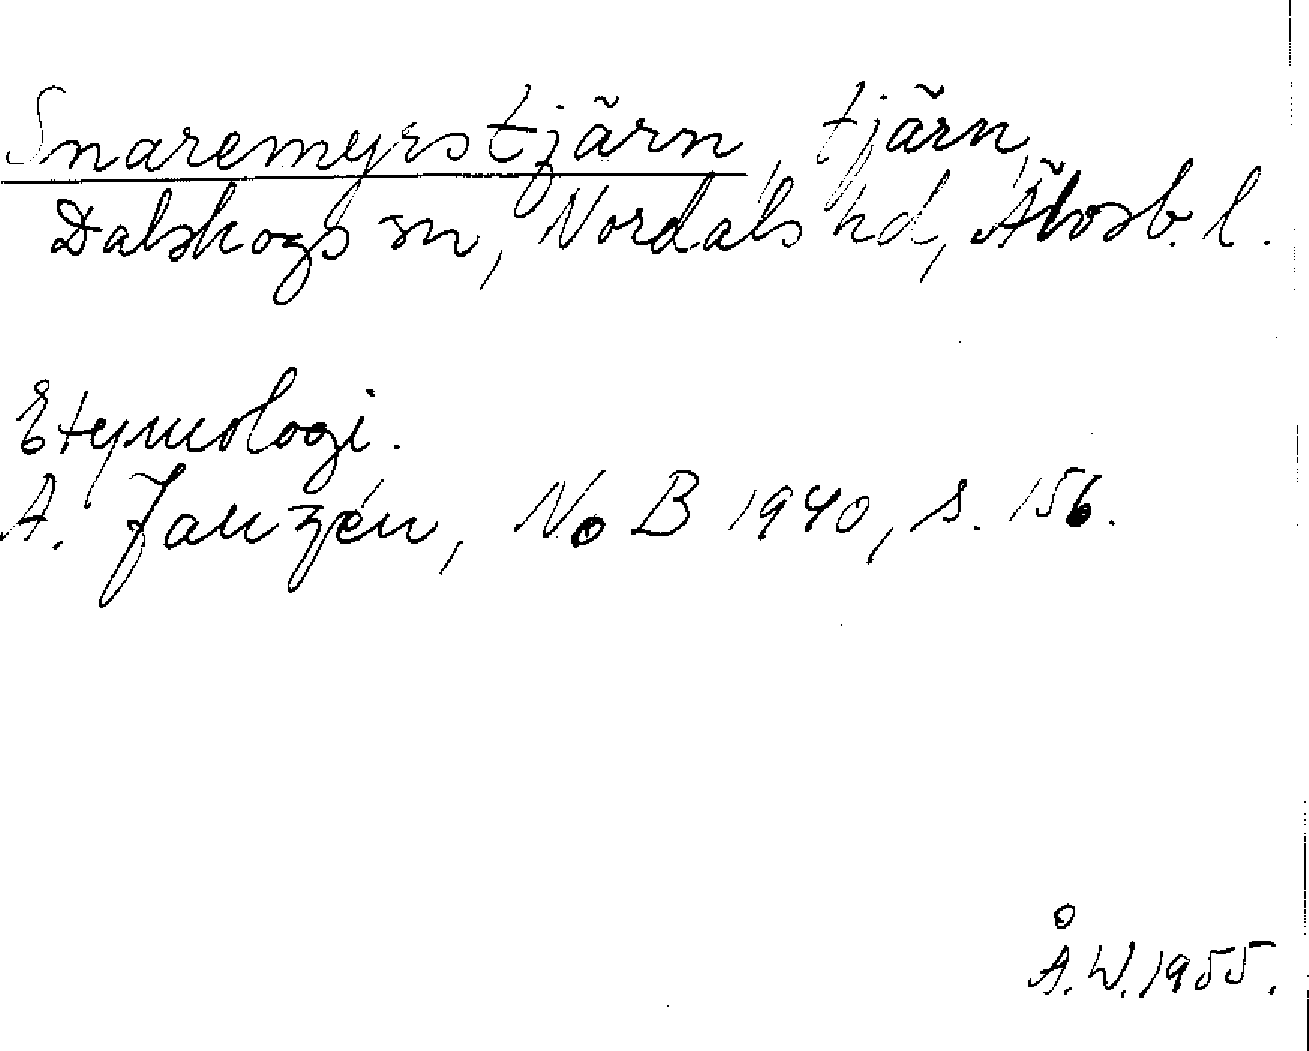 Snaremyrstjärn, tjärn,
Dalskogs sn, Nordals hd, Älvsb. l.
Etymologi.
A. Janzén, NoB 1940, s. 156.
Å.W. 1955.